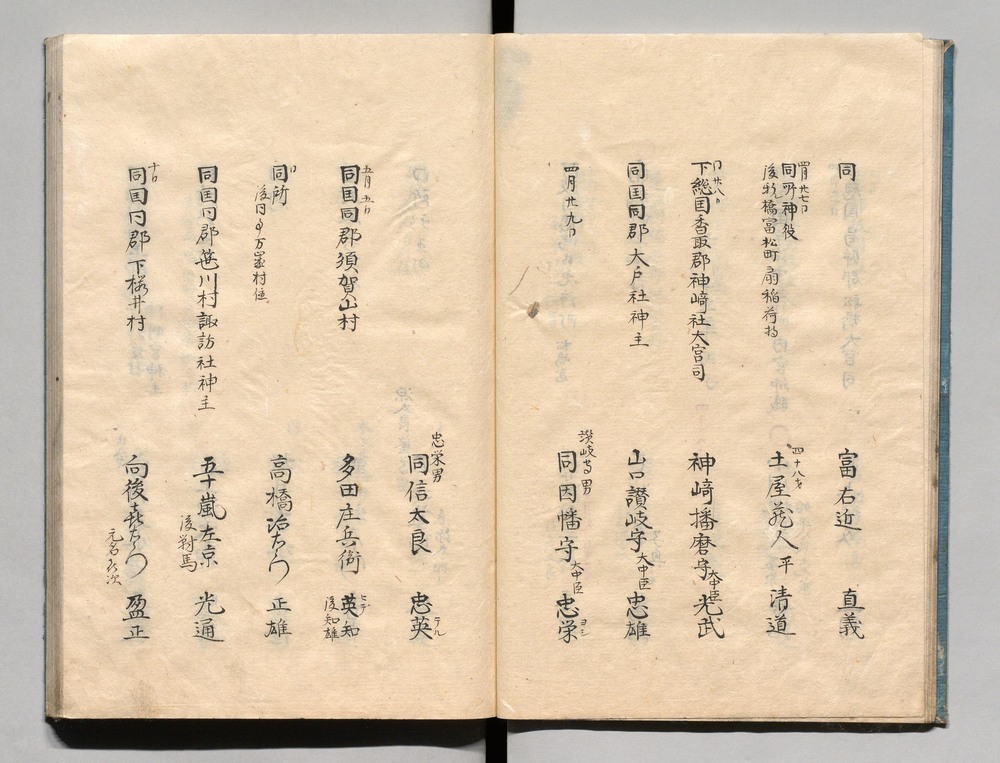 同 富右近 直義
四月廿七日
同所神役 四十八才 土屋蔵人平 清道
後 橋富松町扇稲荷持
同廿八日
下総国香取郡神﨑社大宮司 神﨑播磨守大中臣光武
同国同郡大戸社神主 山口讃岐守大中臣忠雄
四月廿九日 讃岐守男 同因幡守大中臣忠栄ヨシ
忠栄男 同信太良 忠英テル
五月五日
同国同郡須賀山村 多田庄兵衛 英知ヒデ
後知雄
同日
同所 高橋治右衛門 正雄
後同郡万歳村住
同国同郡笹川村諏訪社神主 五十嵐左京 光通
後対馬
十日
同国同郡下桜井村 向後喜右衛門 盈正